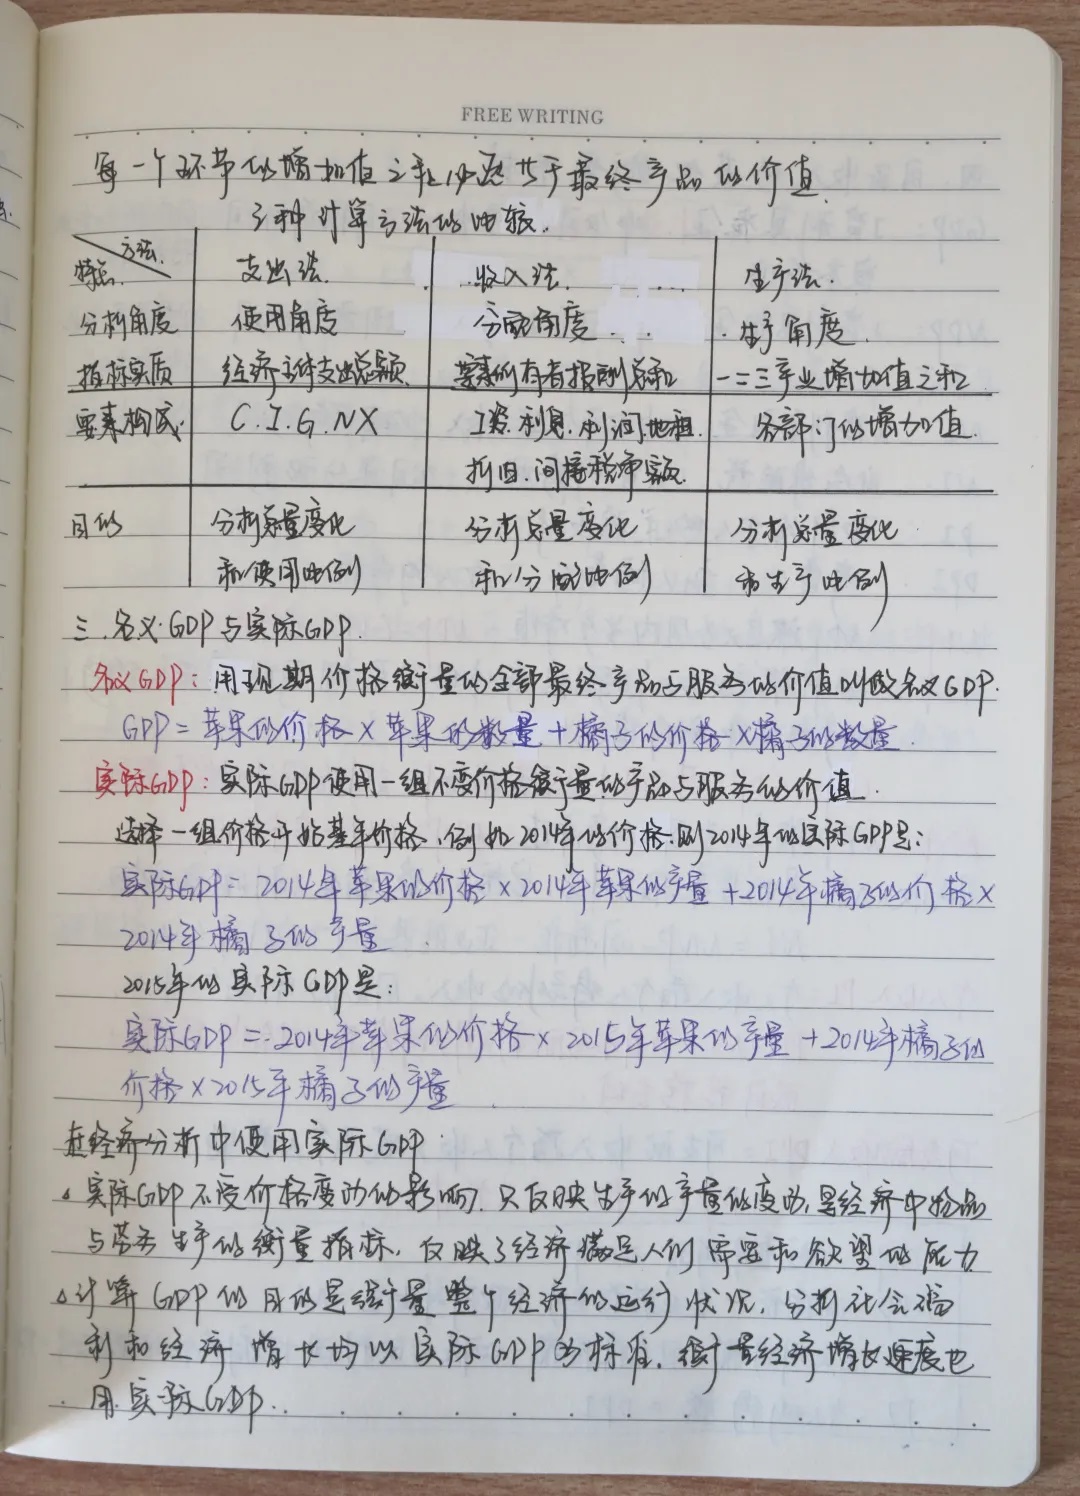 FREE WRITING
每一个环节的增加值之和必定等于最终产品的价值.
三种计算方法的比较.
方法.
特点. 支出法. 收入法. 生产法.
分析角度 使用角度 分配角度 生产角度.
指标实质 经济主体支出总额. 要素所有者报酬总和 一二三产业增加值之和.
要素构成. C.I.G.NX 工资.利息.利润.地租. 各部门的增加值.
折旧.间接税净额.
目的 分析总量变化 分析总量变化 分析总量变化
和使用比例 和分配比例 和生产比例
三.名义GDP与实际GDP.
名义GDP:用现期价格衡量的全部最终产品与服务的价值叫做名义GDP.
GDP=苹果的价格×苹果的数量+橘子的价格×橘子的数量.
实际GDP:实际GDP使用一组不变价格衡量的产品与服务的价值.
选择一组价格开始基年价格,例如2014年的价格.则2014年的实际GDP是:
实际GDP=2014年苹果的价格×2014年苹果的产量+2014年橘子的价格×
2014年橘子的产量.
2015年的实际GDP是:
实际GDP=2014年苹果的价格×2015年苹果的产量+2014年橘子的
价格×2015年橘子的产量
在经济分析中使用实际GDP:
△实际GDP不受价格变动的影响.只反映生产的产量的变动,是经济中物品
与劳务生产的衡量指标,反映了经济满足人们需要和欲望的能力
△计算GDP的目的是衡量整个经济的运行状况.分析社会福
利和经济增长均以实际GDP为标准.衡量经济增长速度也
用实际GDP.